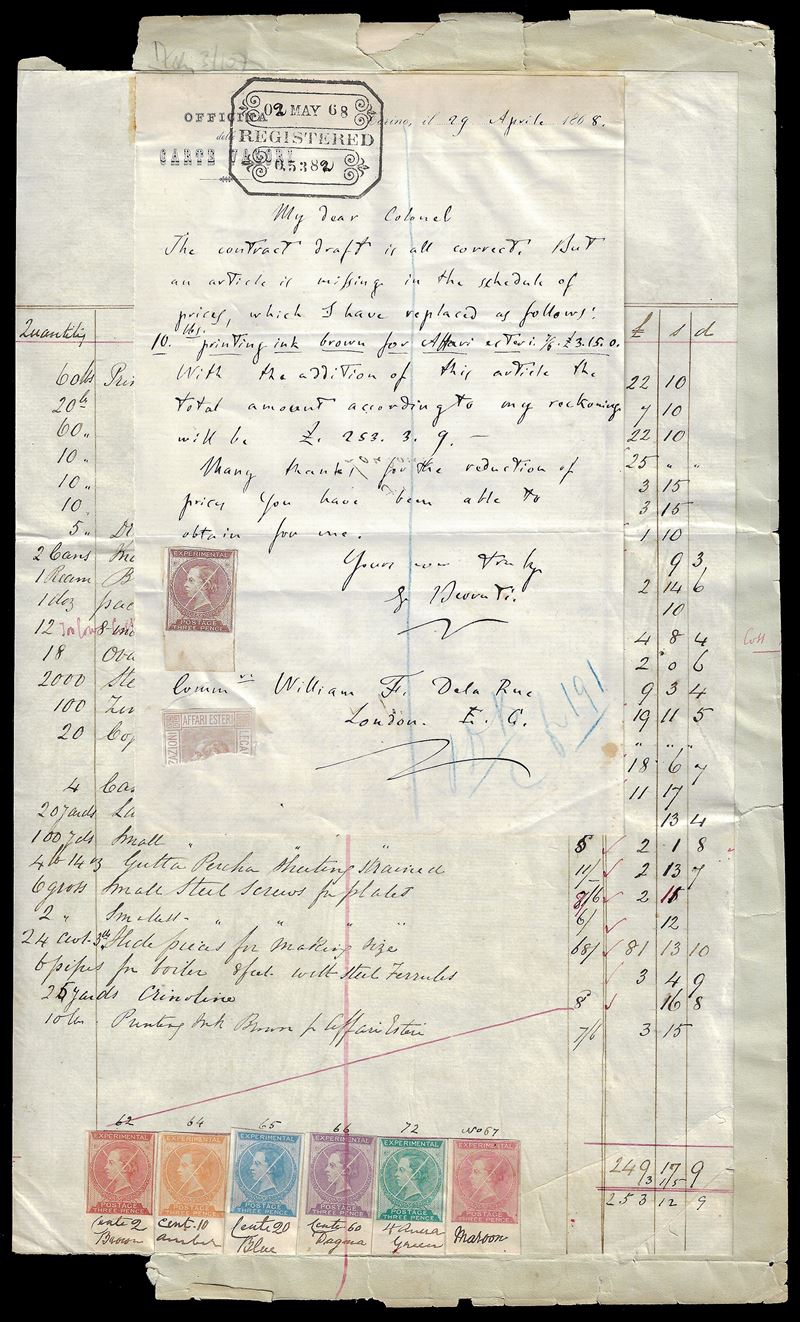 02 MAY 68
REGISTERED
05382
OFFICINA
delle
CARTE VALORI
Torino, il 29 Aprile 1868.
My dear Colonel
The contract draft is all correct. But
an article is missing in the schedule of
prices, which I have replaced as follows:
10. lbs. printing ink brown for Affari esteri. 7/6. £3.15.0.
With the addition of this article the
total amount according to my reckoning
will be £. 253. 3. 9. —
Many thanks for the reduction of
prices you have been able to
obtain for me.
Yours very truly
EXPERIMENTAL
POSTAGE
THREE PENCE
Comm. William F. Dela Rue
London. E. C.
AFFARI ESTERI
Quantity £ s d
60 lbs 22 10
20 lb 7 10
60 " 22 10
10 " 25 " "
10 " 3 15
10 " 3 15
5 " 1 10
2 Cans 9 3
1 Ream 2 14 6
1 doz 10
12 4 8 4 Cost
18 2 0 6
2000 9 3 4
100 19 11 5
20 " " "
18 6 7
4 11 17
20 yards 13 4
100 yds Small " 5 2 1 8
4 lb 14 oz Gutta Percha Sheeting Strained 11/ 2 13 7
6 gross Small Steel Screws for plates 2 15
2 " Smallest " " " 6/ 12
24 cwt 3 lb Hide pieces for making size 68/ 81 13 10
6 pipes for boiler 8 feet with steel Ferrules 3 4 9
25 yards Crinoline 8 16 8
10 lbs Printing Ink Brown for Affari Esteri 7/6 3 15
249 17 9
3 15
253 12 9
62 64 65 66 72 No 67
EXPERIMENTAL EXPERIMENTAL EXPERIMENTAL EXPERIMENTAL EXPERIMENTAL EXPERIMENTAL
POSTAGE POSTAGE POSTAGE POSTAGE POSTAGE POSTAGE
THREE PENCE THREE PENCE THREE PENCE THREE PENCE THREE PENCE THREE PENCE
Cents 2 Cent. 10 Cents 20 Cents 60 Green Maroon
Brown amber Blue